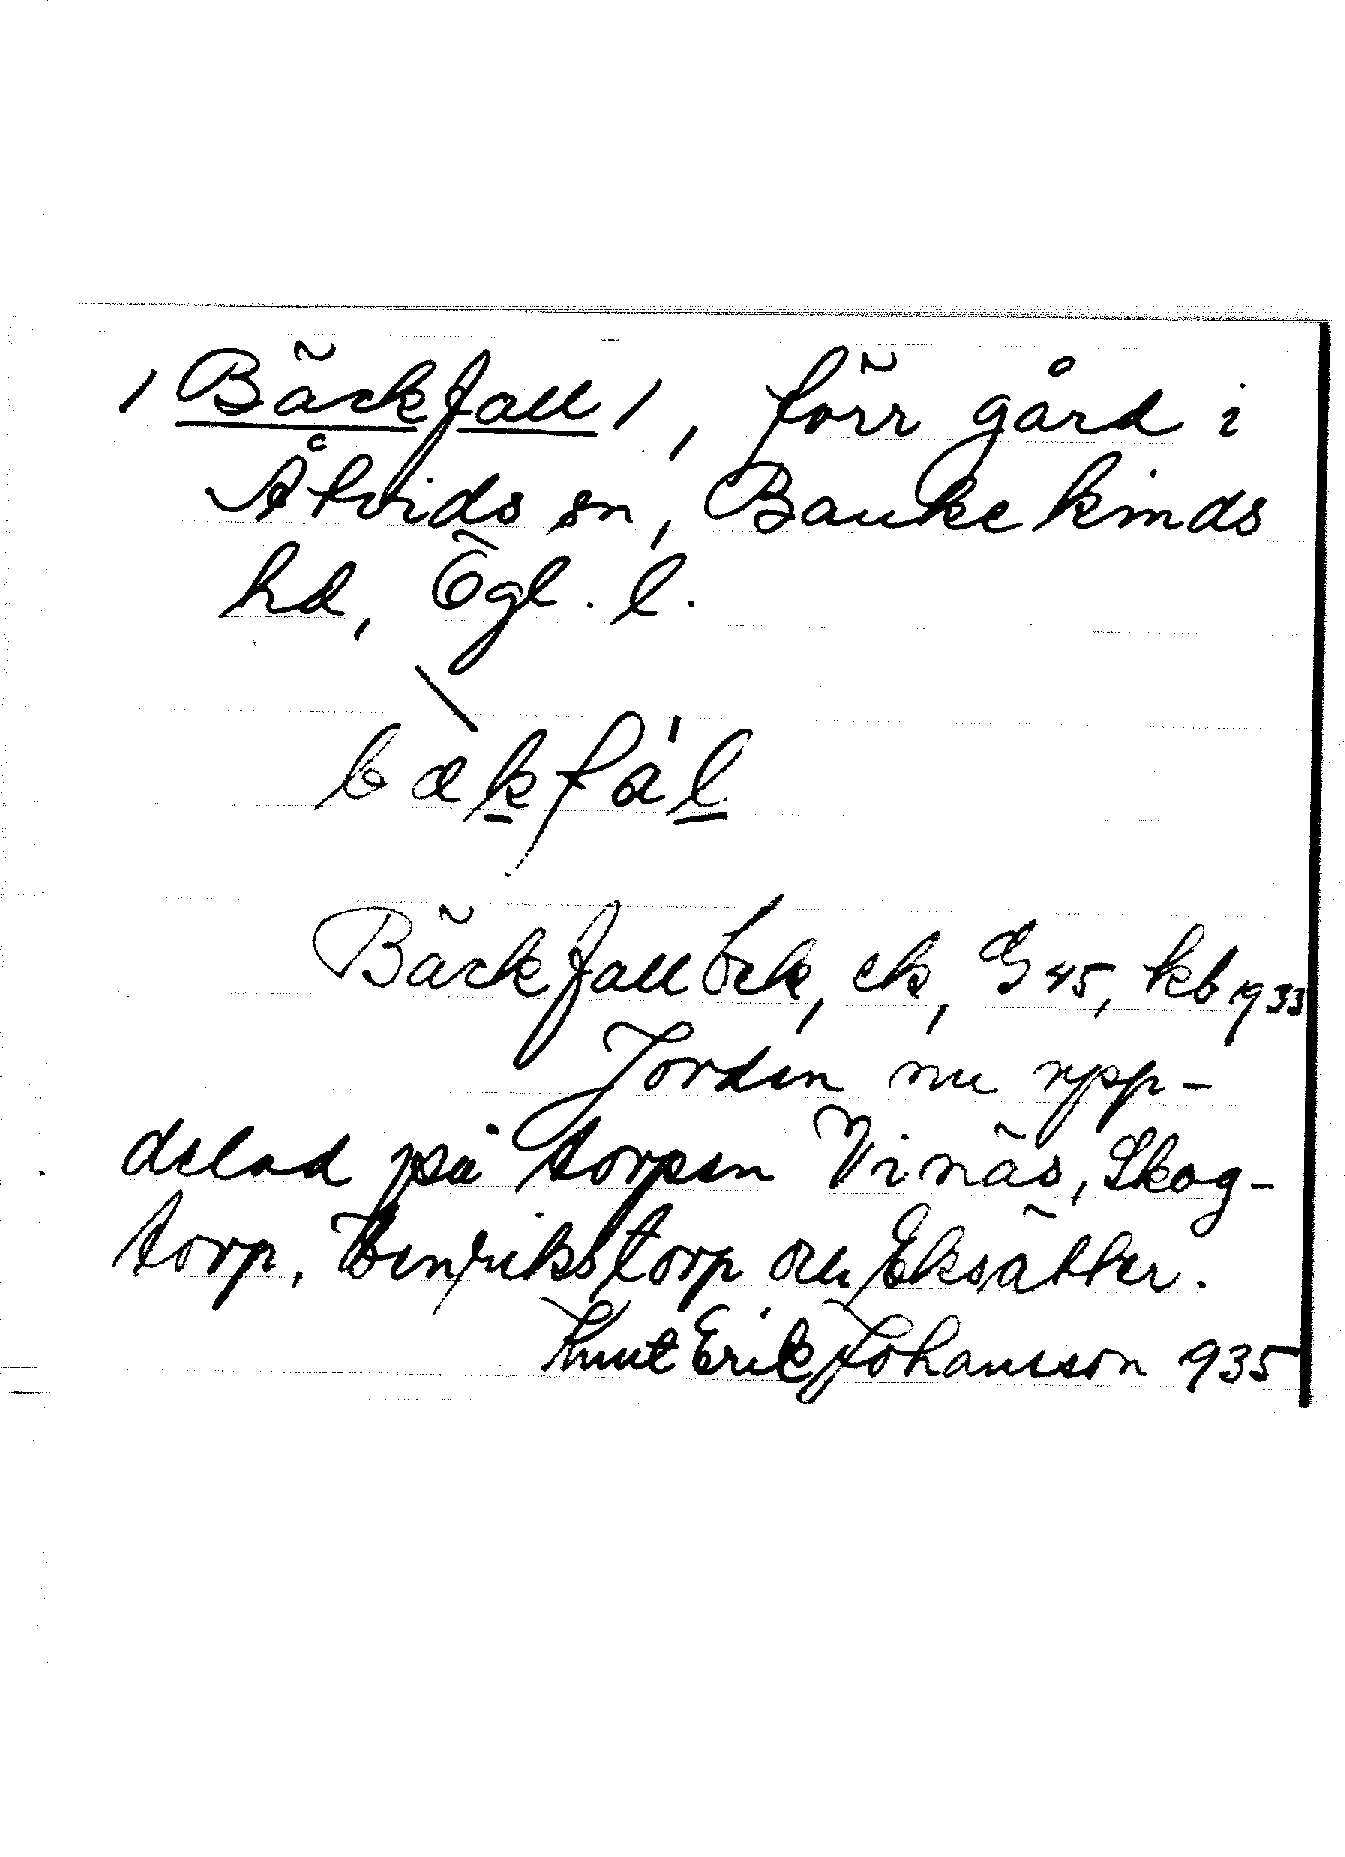 /Bäckfall/, förr gård i
Åtvids sn, Bankekinds
hd, Ögl. l.
bækfàl
Bäckfall bek, ek, G45, kb 1933
Jorden nu upp-
delad på torpen Vinäs, Skog-
torp, Henrikstorp och Eksätter.
Knut Erik Johansson 935